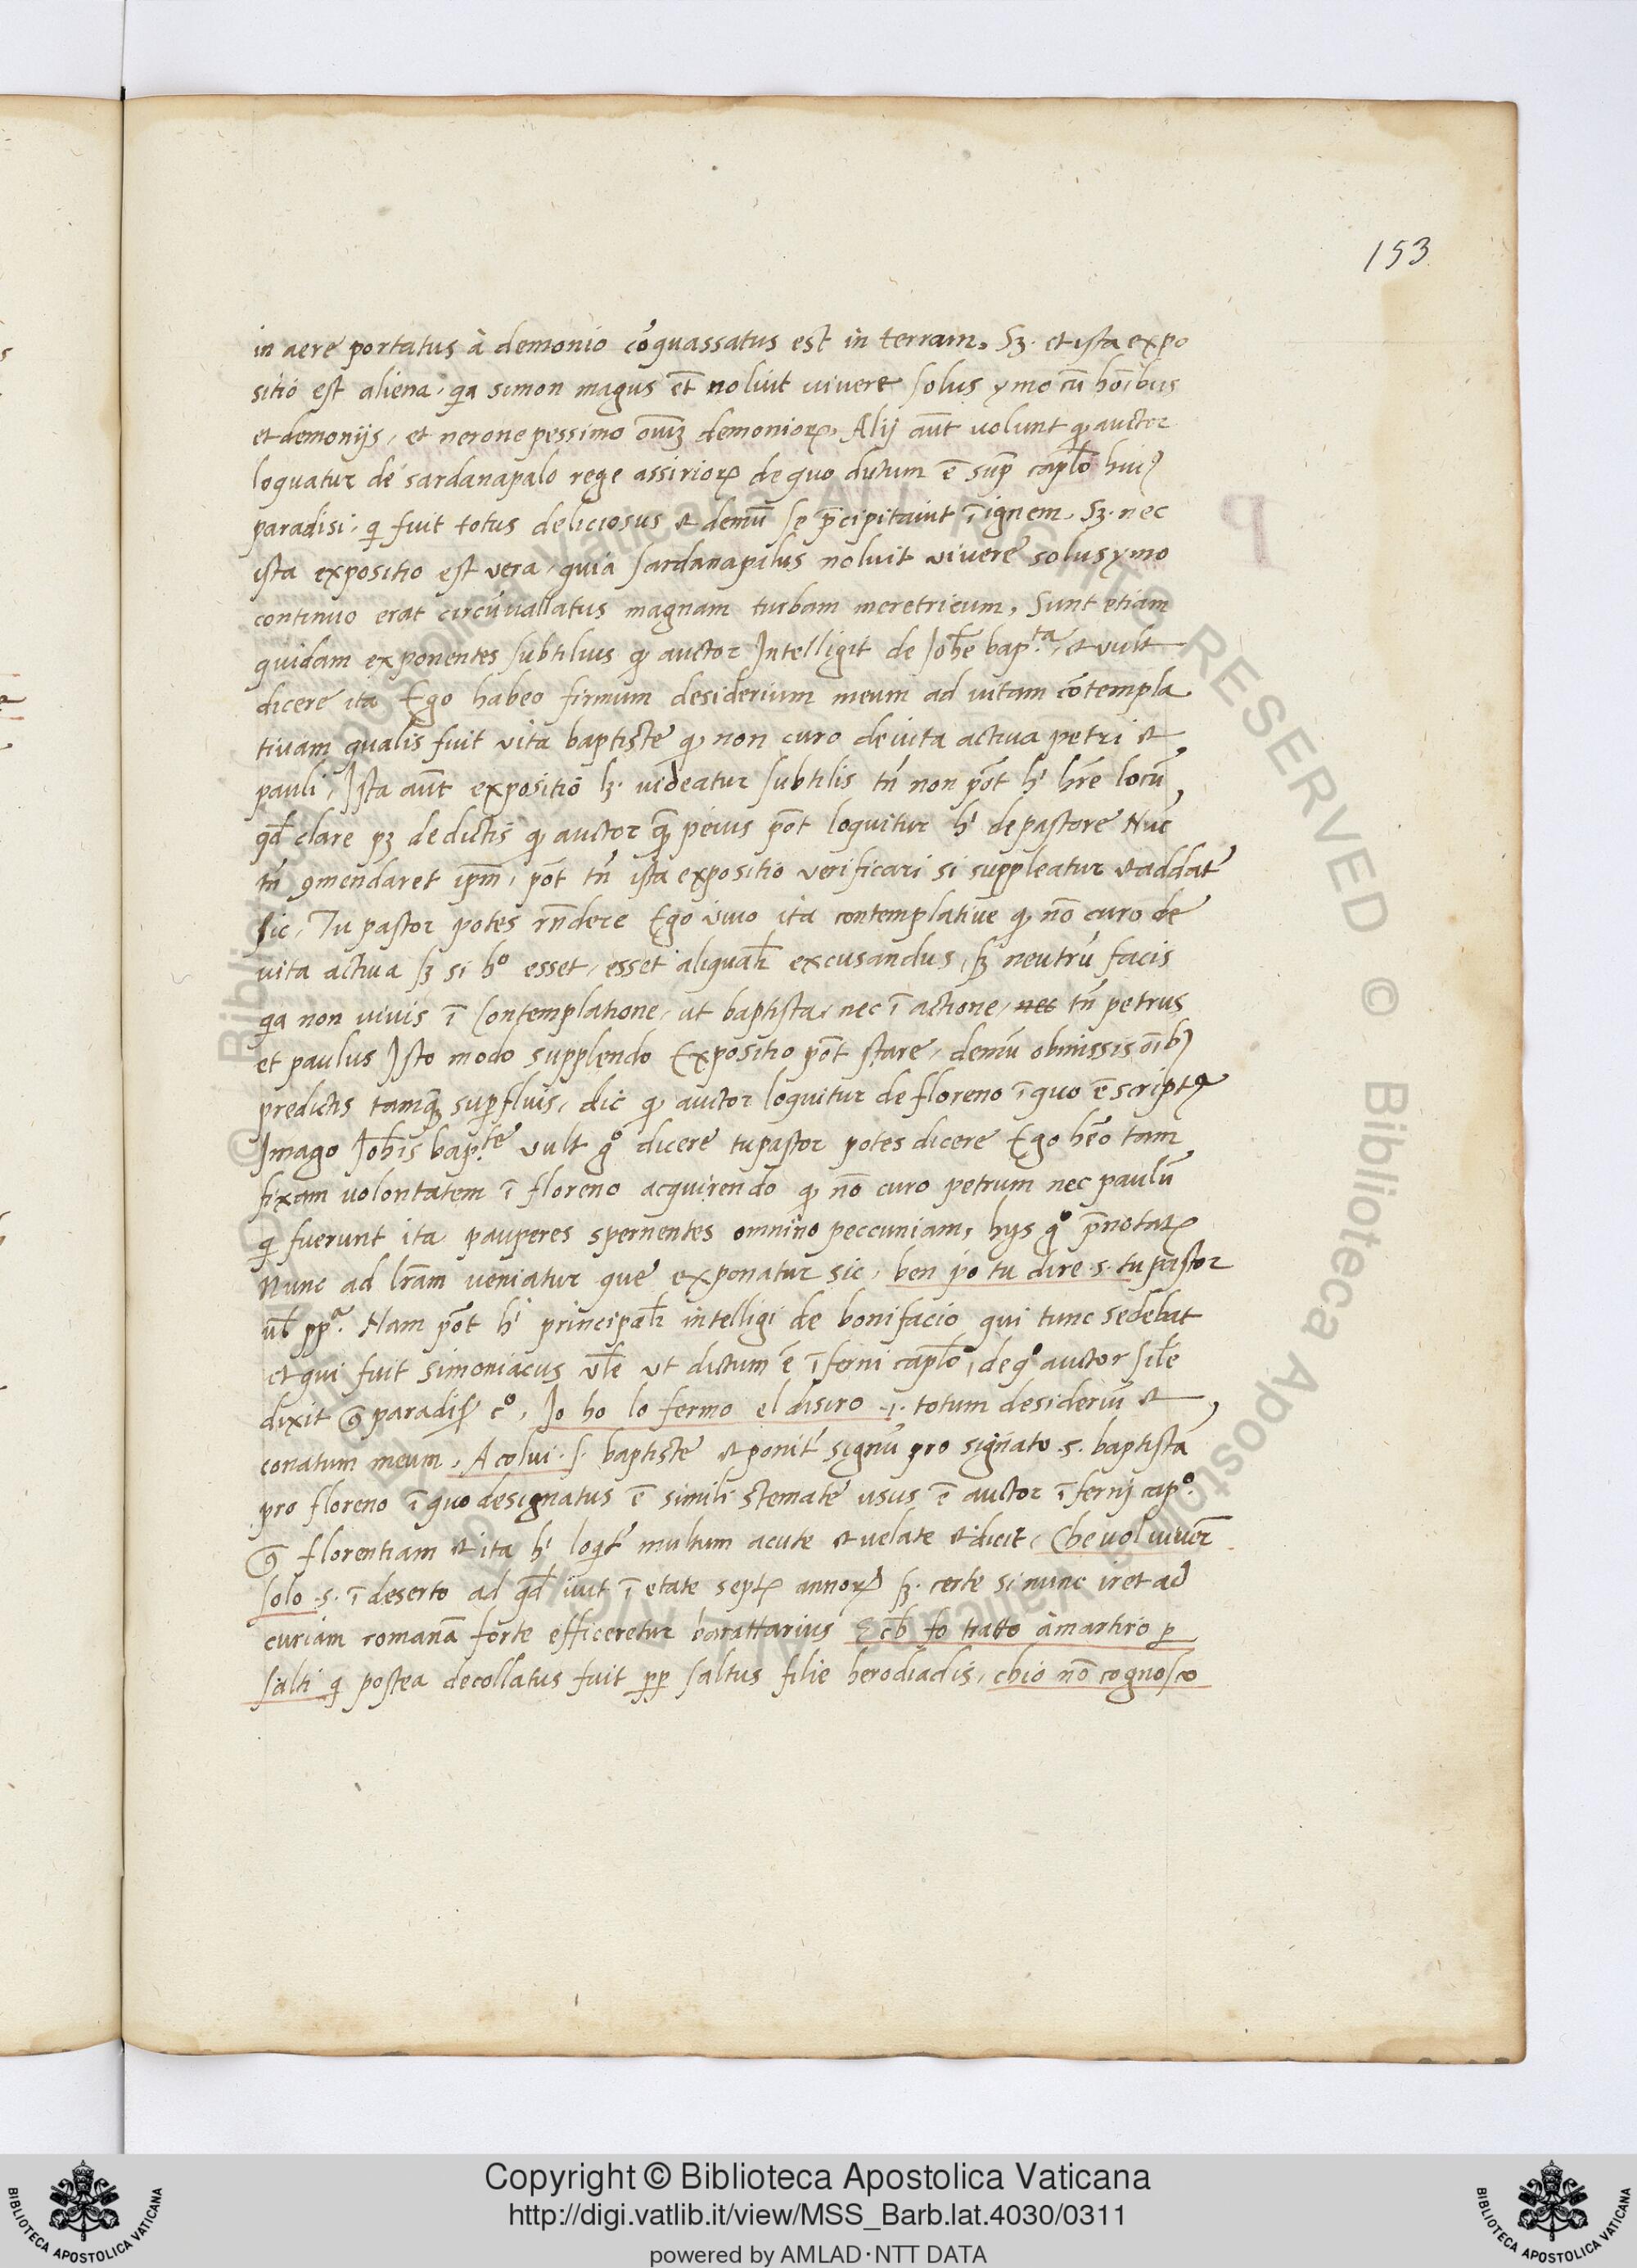 153
in aere portatus à demonio cōquassatus est in terram. Sʒ. et ista expo
sitio est aliena. qa simon magus et̄ noluit uiuere solus ymo cū hoībus
et demonijs, et nerone pessimo omīuʒ demonioꝝ. Alij aūt uolunt ꝙ auctor
loquatur de sardanapalo rege assirioꝝ de quo dictum ē sup̄ cap̄lo huiꝰ
paradisi. qi fuit totus deliciosus et demū se p̄cipitauit ī ignem. Sʒ. nec
ista expositio est vera, quia sardanapalus noluit vivere solus ymo
continuo erat circūuallatus magnam turbam meretricum, Sunt etiam
quidam exponentes subtilius ꝙ auctor Intelligit de Johē bap.ta, et vult
dicere ita Ego habeo firmum desiderium meum ad uitam cōtempla
tiuam qualis fuit vita baptiste ꝙ non curo de uita actiua petri et
pauli, Ista aūt expositio lʒ. uideatur subtilis tn̄ non pōt h' hr̄e locū,
qd̄ clare pʒ de dictis ꝙ auctor qʒ peius pōt loquitur h' de pastore Nūc
tn̄ ꝯmendaret ipm̄, pōt tn̄ ista expositio verificari si suppleatur et addat'
sic, Tu pastor potes rn̄dere Ego vivo ita contemplative ꝙ nō curo de
vita actiua sʒ si hº esset, esset aliqualr̄ excusandus, sʒ neutrū facis
qa non vivis ī Contemplatione, ut baptista, nec ī actione, nec tn̄ petrus
et paulus Isto modo supplendo Expositio pōt stare, demū obmissis oībꝰ
predictis tamqʒ suꝑfluis, dic ꝙ auctor loquitur de floreno ī quo ē scriptꝰ
Imago Johīs bap.te vult gº dicere tu pastor potes dicere Ego hēo tam
fixam volontatem ī floreno acquirendo ꝙ nō curo petrum nec paulū
qi fuerunt ita pauperes spernentes omnino peccuniam, hijs gº p̄notatꝭ
Nunc ad lr̄am ueniatur que exponatur sic, ben po tu dire .s. tu pastor
ul̄ ppª. Nam pōt h' principalr̄ intelligi de bonifacio qui tunc sedebat
et qui fuit simoniacus vl̄e ut dictum ē īferni cap̄lo, de qº auctor sil̄e
dixit ꝯ paradisi cº, Jo ho lo fermo el disiro .i. totum desideriū et
conatum meum, A colui .s. baptiste et ponit' signū pro signato .s. baptista
pro floreno ī quo designatus ē simili stemate usus ē auctor īfernj capº.
ꝯ florentiam et ita h' loqit' multum acute et velate et dicit, Che uol uiuer
solo .s. ī deserto ad qd̄ iuit ī etate septꝭ annoꝝ sʒ. certe si nunc iret ad
curiam romanā forte efficeretur barattarius E ch̄ fo tratto à martiro ꝑ
salti qi postea decollatus fuit ꝓp saltus filie herodiadis, chio nō cognosco
Copyright © Biblioteca Apostolica Vaticana
http://digi.vatlib.it/view/MSS_Barb.lat.4030/0311
powered by AMLAD·NTT DATA
BIBLIOTECA APOSTOLICA VATICANA
BIBLIOTECA APOSTOLICA VATICANA